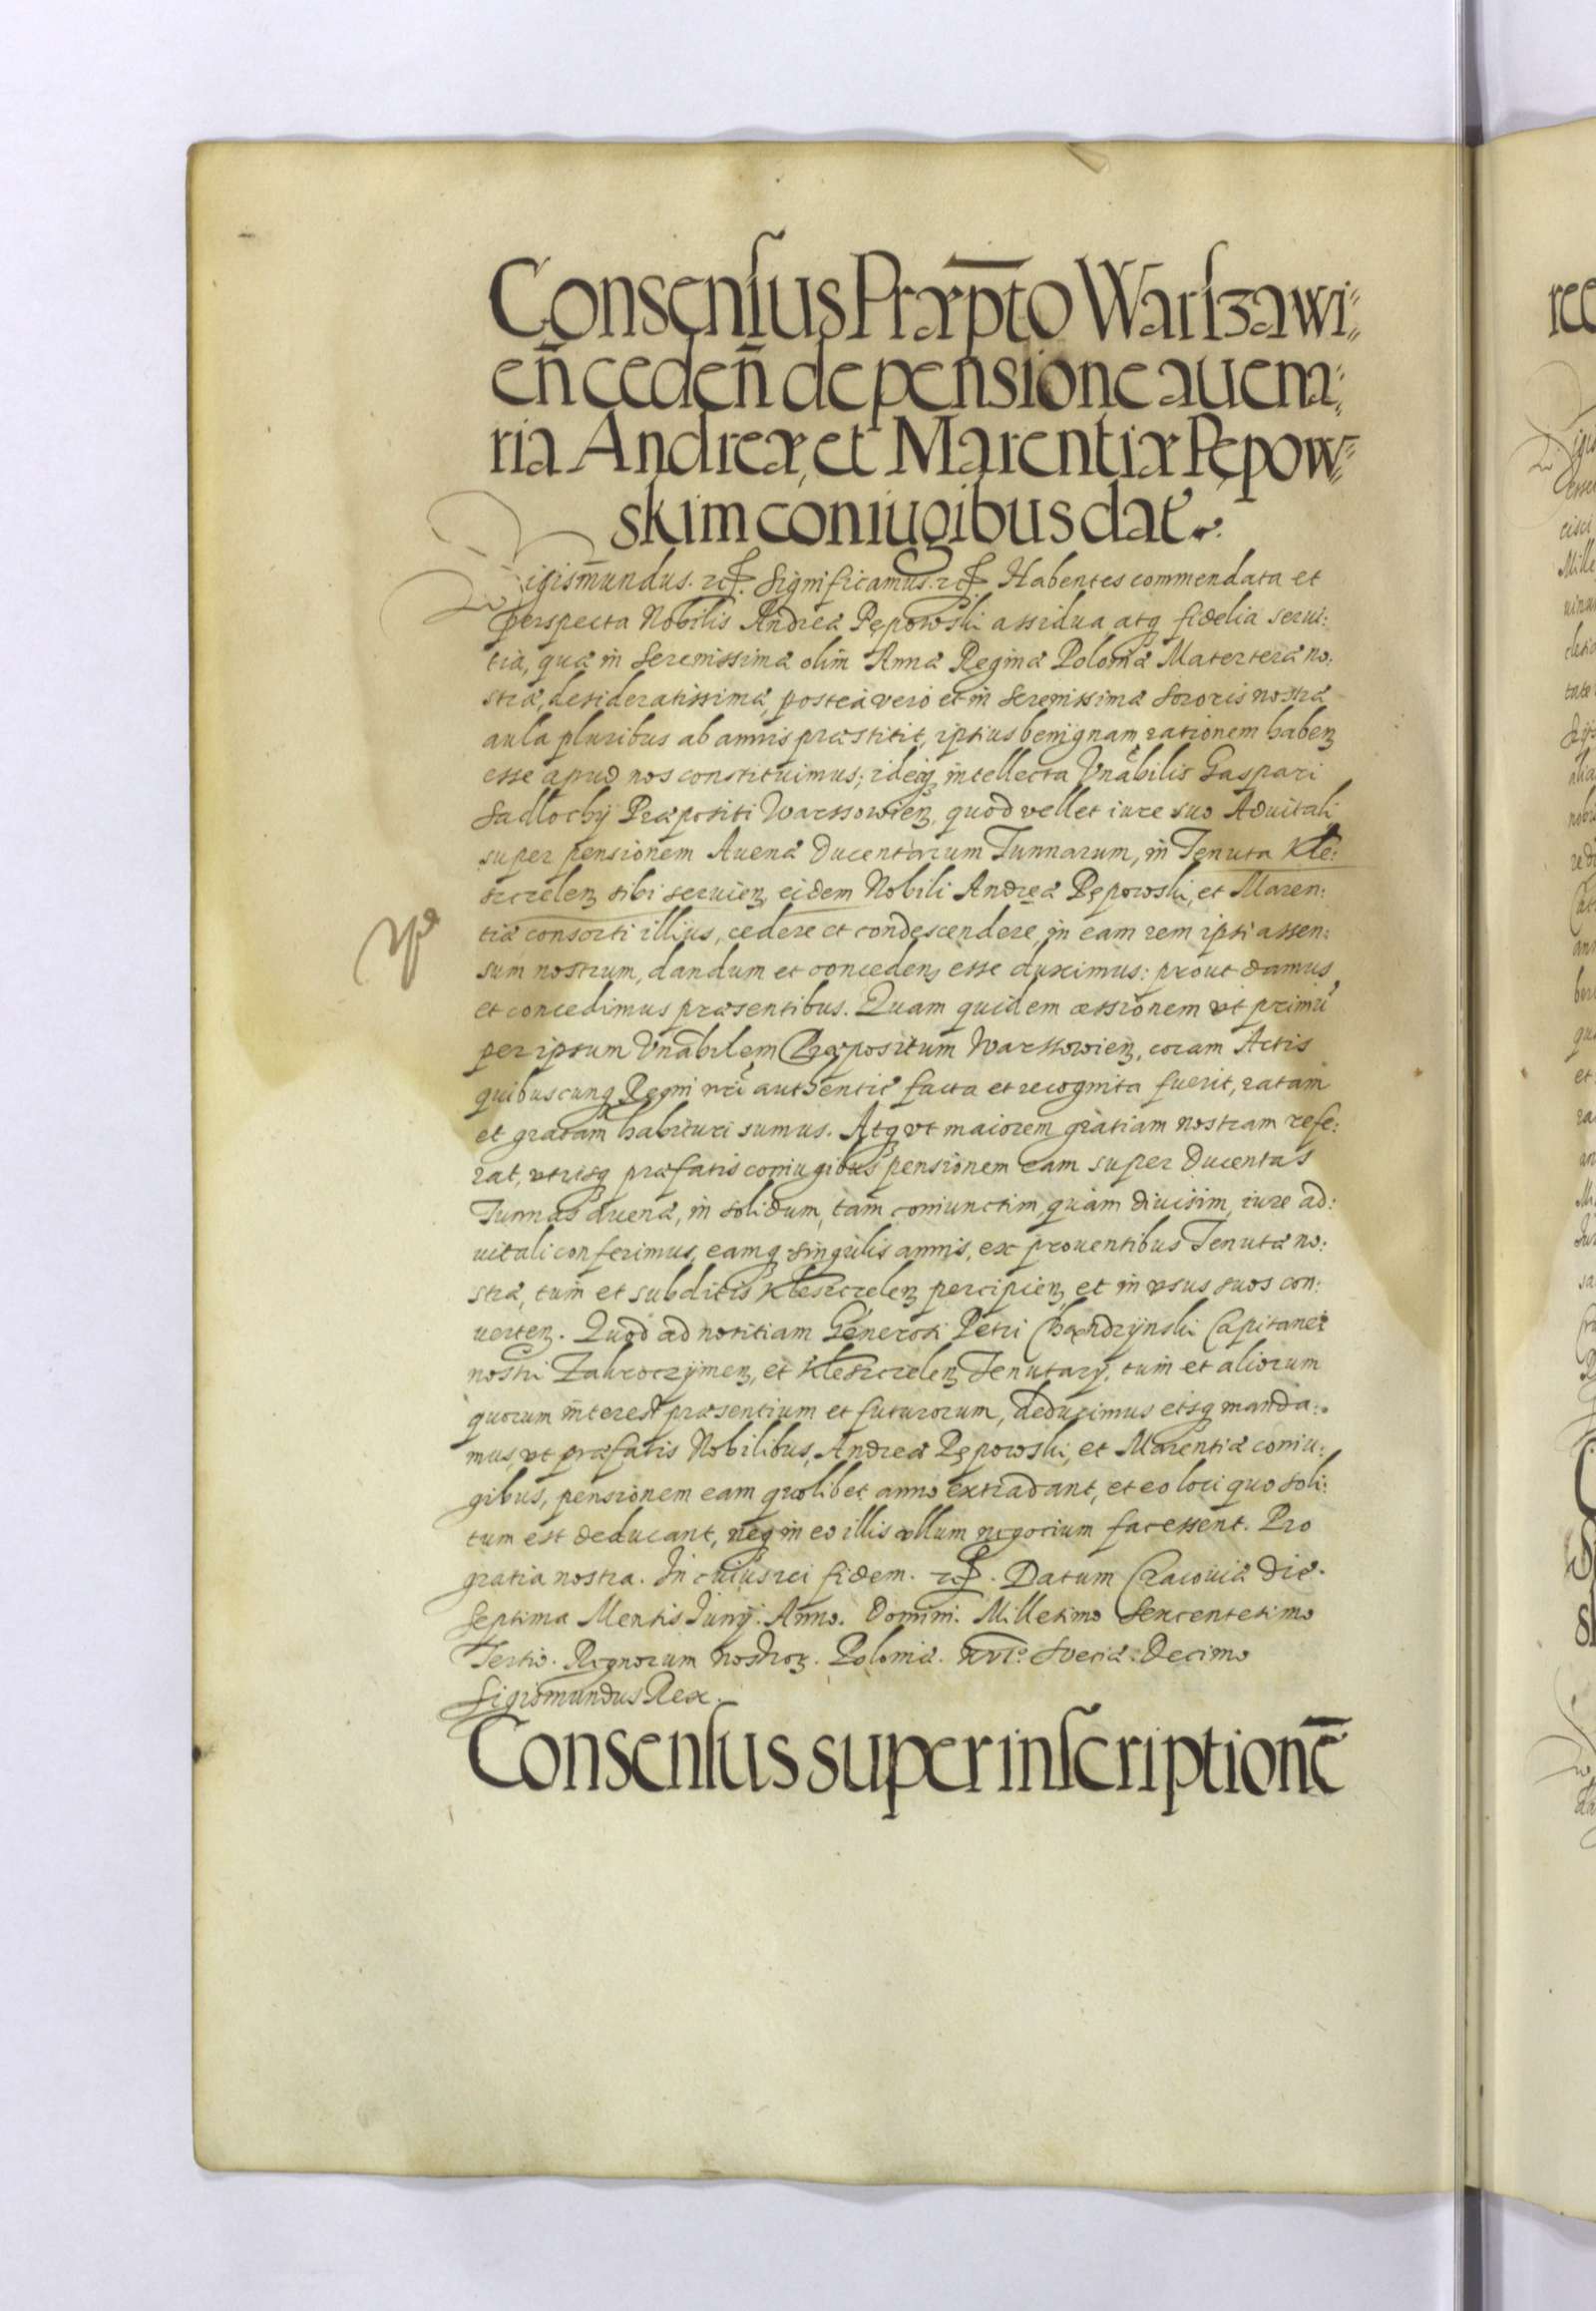 Consensus Præpto Warszawi=
en̄ ceden̄ de pensione auena=
ria Andreæ, et Marentiæ Pępow=
skim coniugibus dat.
Sigism̄undus. etc. Significamus. etc. Habentes commendata et
perspecta Nobilis Andreæ Pępowski assidua atq fidelia serui:
tia, quæ in Serenissimæ olim Annæ Reginæ Poloniæ Materteræ no:
stræ, desideratissimæ, postea vero et in Serenissimæ Sororis nostræ
aula pluribus ab annis præstitit, ipsius benignam rationem habenꝫ
esse apud nos constituimus; ideoqꝫ intellecta Vnabilis Gaspari
Sadlochij Præpositi Warssowienꝫ, quod vellet iure suo Aduitali
super pensionem Auenæ Ducentarum Tunnarum, in Tenuta Kle:
szczelenꝫ sibi seruienꝫ, eidem Nobili Andreæ Pępowski, et Maren:
tiæ consorti illius, cedere et condescendere, in eam rem ipsi assen:
sum nostrum, dandum et concedenꝫ esse duximus: prout damus
et concedimus præsentibus. Quam quidem cessionem vt primū
per ipsum Vnabilem Præpositum Warssowienꝫ, coram Actis
quibuscunq Regni nri authentic facta et recognita fuerit, ratam
et gratam habituri sumus. Atq vt maiorem gratiam nostram refe:
rat, vtrisq præfatis coniugibus pensionem eam super Ducentas
Tunnas auenæ, in solidum, tam coniunctim, quam diuisim, iure ad:
uitali conferimus, eamq singulis annis, ex prouentibus Tenutæ no:
stræ, tum et subditis Kleszczelenꝫ percipienꝫ, et in vsus suos con:
uertenꝫ. Quod ad notitiam Generosi Petri Chądzijnski Capitanei
nostri Zakroczijmenꝫ, et Kleszczelenꝫ Tenutarij, tum et aliorum
quorum interest præsentium et futurorum, deducimus eisq manda:
mus, vt præfatis Nobilibus, Andreæ Pępowski, et Marentiæ coniu:
gibus, pensionem eam quolibet anno extradant, et eo loci quo soli:
tum est deducant, neq in eo illis vllum negocium facessent. Pro
gratia nostra. In cuius rei fidem. etc. Datum Cracouiæ die.
Septima Mensis Junij. Anno. Domini. Millesimo Sexcentesimo
Tertio. Regnorum nostroꝝ. Poloniæ. XVIº. Sueciæ. Decimo
Sigismundus Rex.
Consensus super inscriptionē